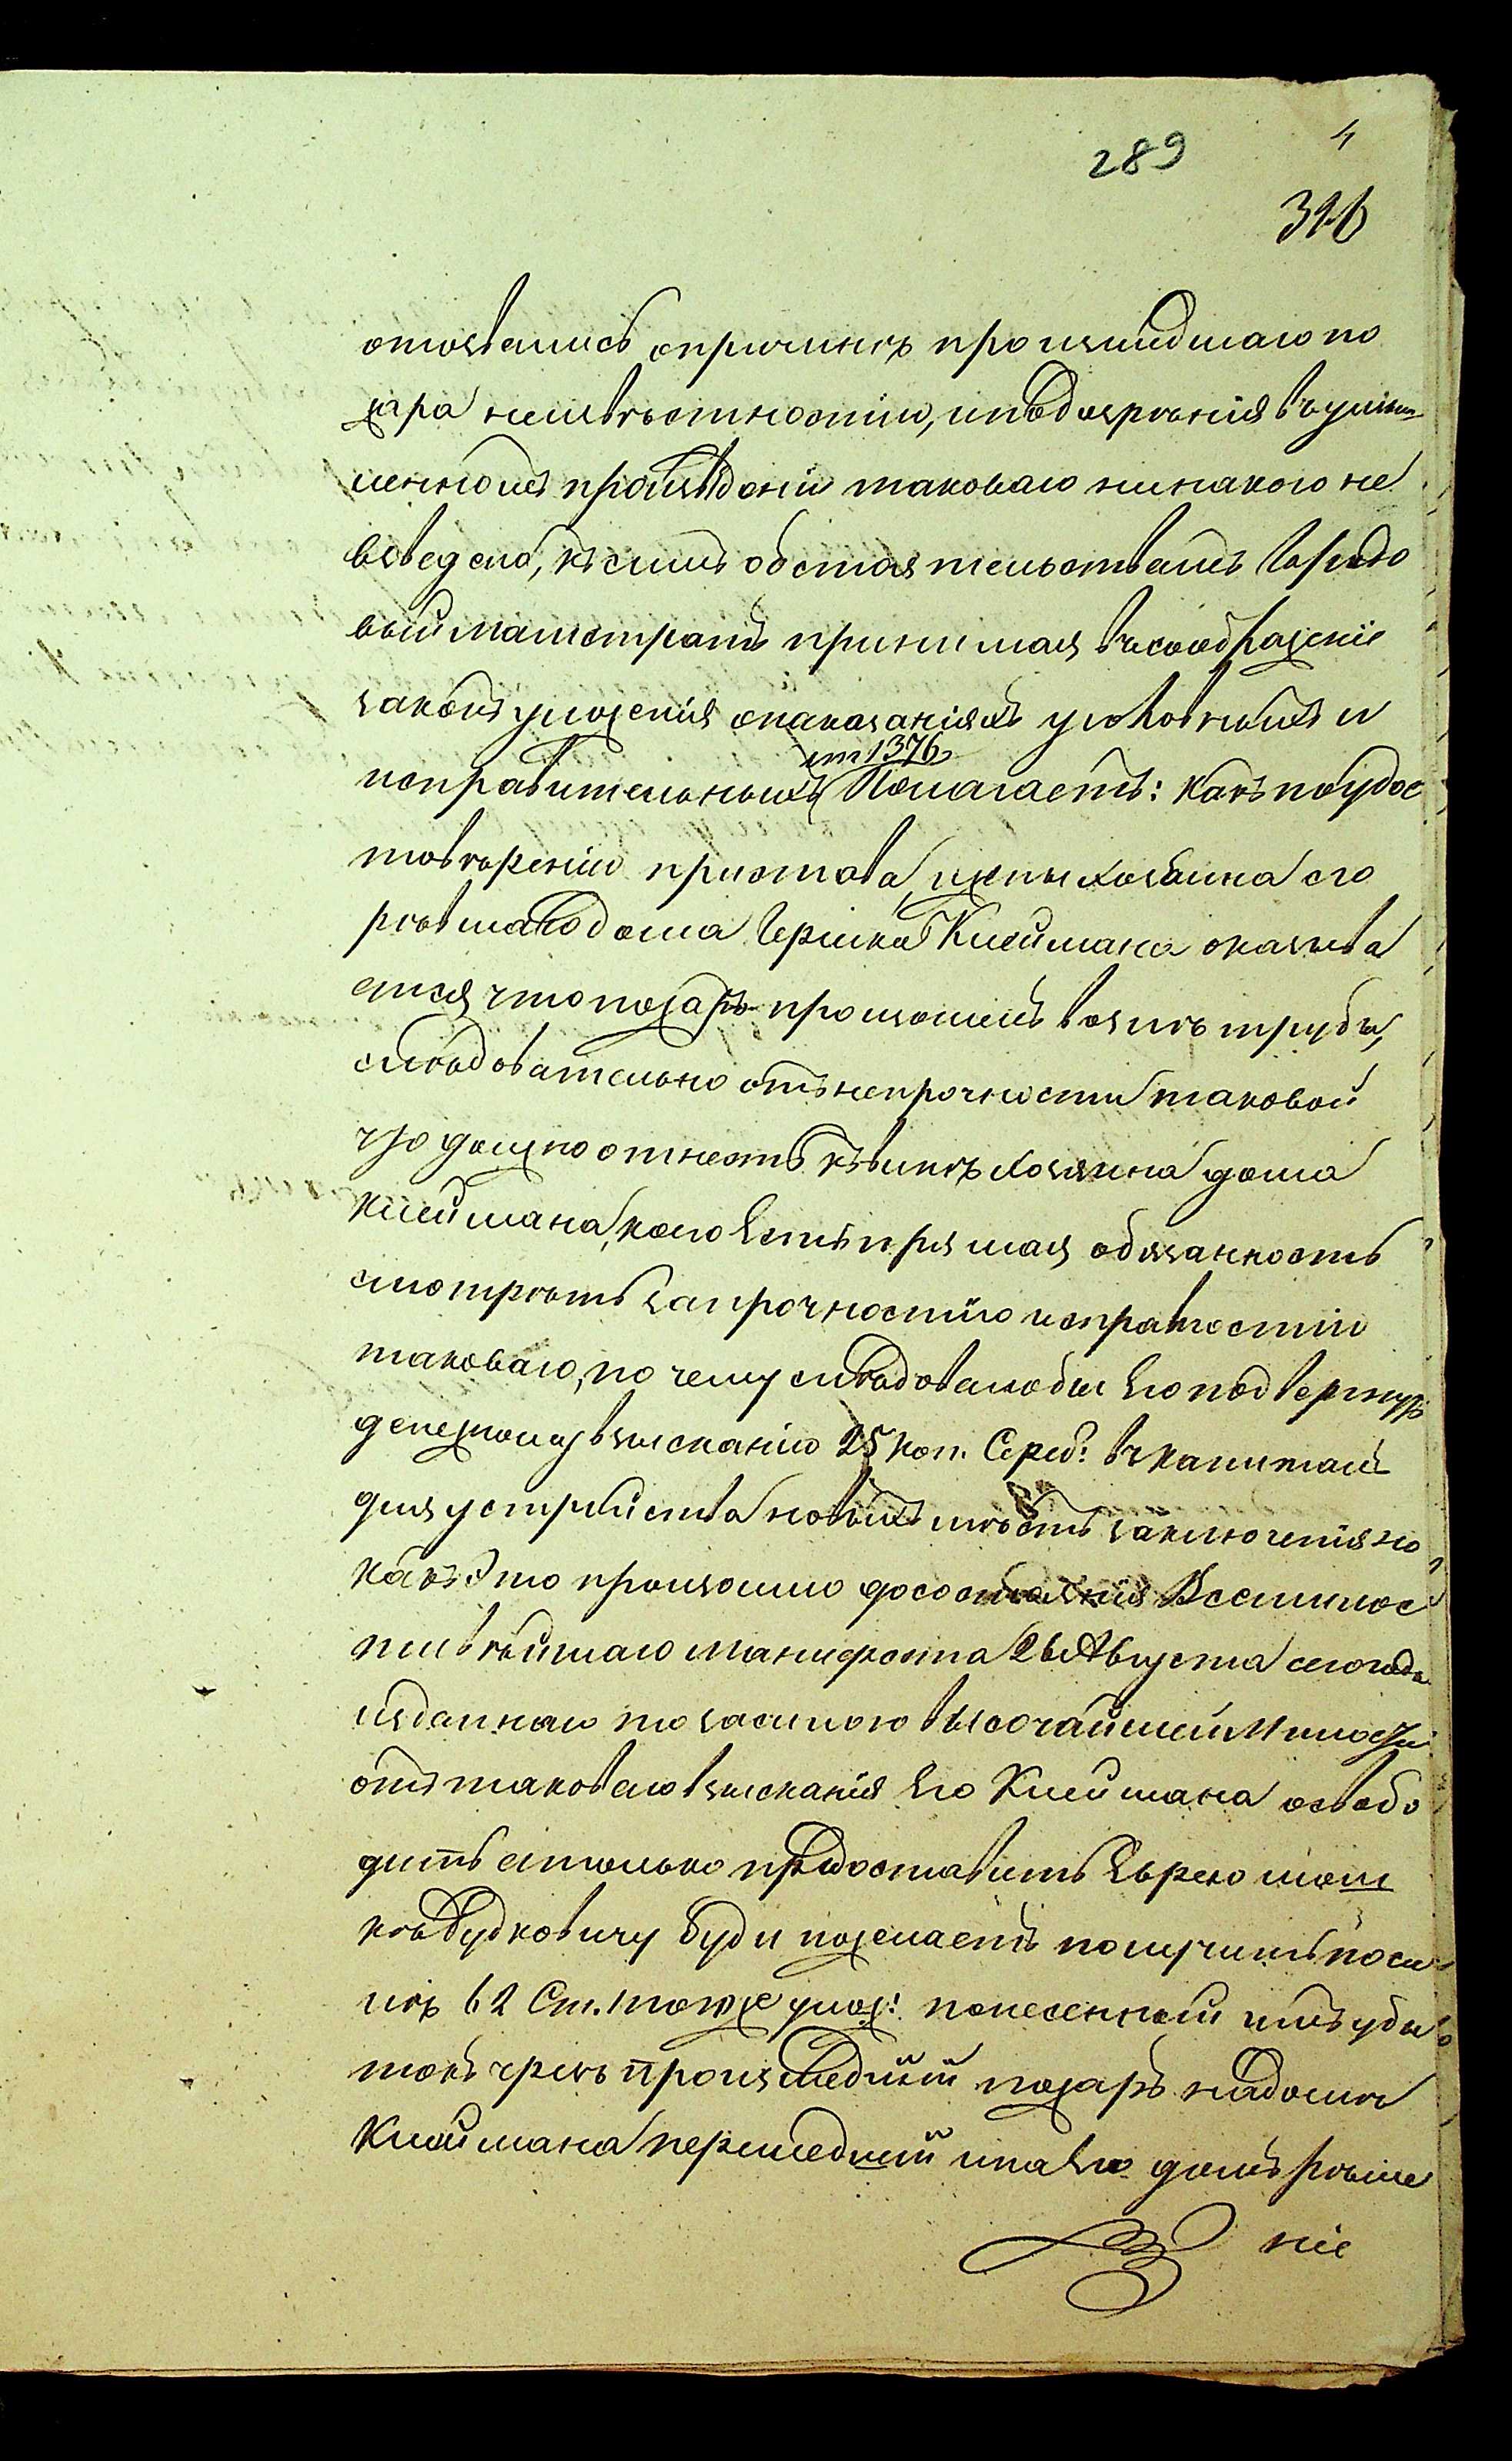 289
4
316
отозвались опричинѣ произшедшаго по
жара неизвѣстностію, иподозрѣнія въумыш
ленномъ произведеніи таковаго ниначкого не
взведено, ксимъ обстоятельствамъ Городо
вый магистратъ принимая въсоображеніе
законъ уложенія онаказаніяхъ уголовныхъ и
ст 1376
исправительныхъ Полагаетъ: Какъ поудос
товѣренію пристава, ижены хозяина его
рѣвшаго дома Гершка Клеймана оказыва
ется что пожаръ произошелъ возлѣ трубы,
слѣдовательно отънепрочности таковой
что должно отнесть къвинѣ хозяина дома
Клеймана, коего Есть прямая обязанность
смотрѣть запрочностію исправностію
таковаго, по чему слѣдовалобы Его подвергнуть
денежному взысканію 25 коп. Сереб: въкапиталъ
для устройства новыхъ мѣстъ заключенія но
какъ Это произошло досостоянія Всемилос
тивѣйшаго манифеста 26 Августа сегогода
изданнаго то засилою Высочайшей Милости
отъ таковаго взысканія Его Клеймана освобо
дить атолько предоставить Еврею мош
кѣ Будковичу буди пожелаетъ получить поси
лѣ 62 Ст. тогоже улож: понесенный имъ убы
токъ чрезъ произшедшій пожаръ надомѣ
Клеймана перешедшій инаЕго домъ рѣше
ніе